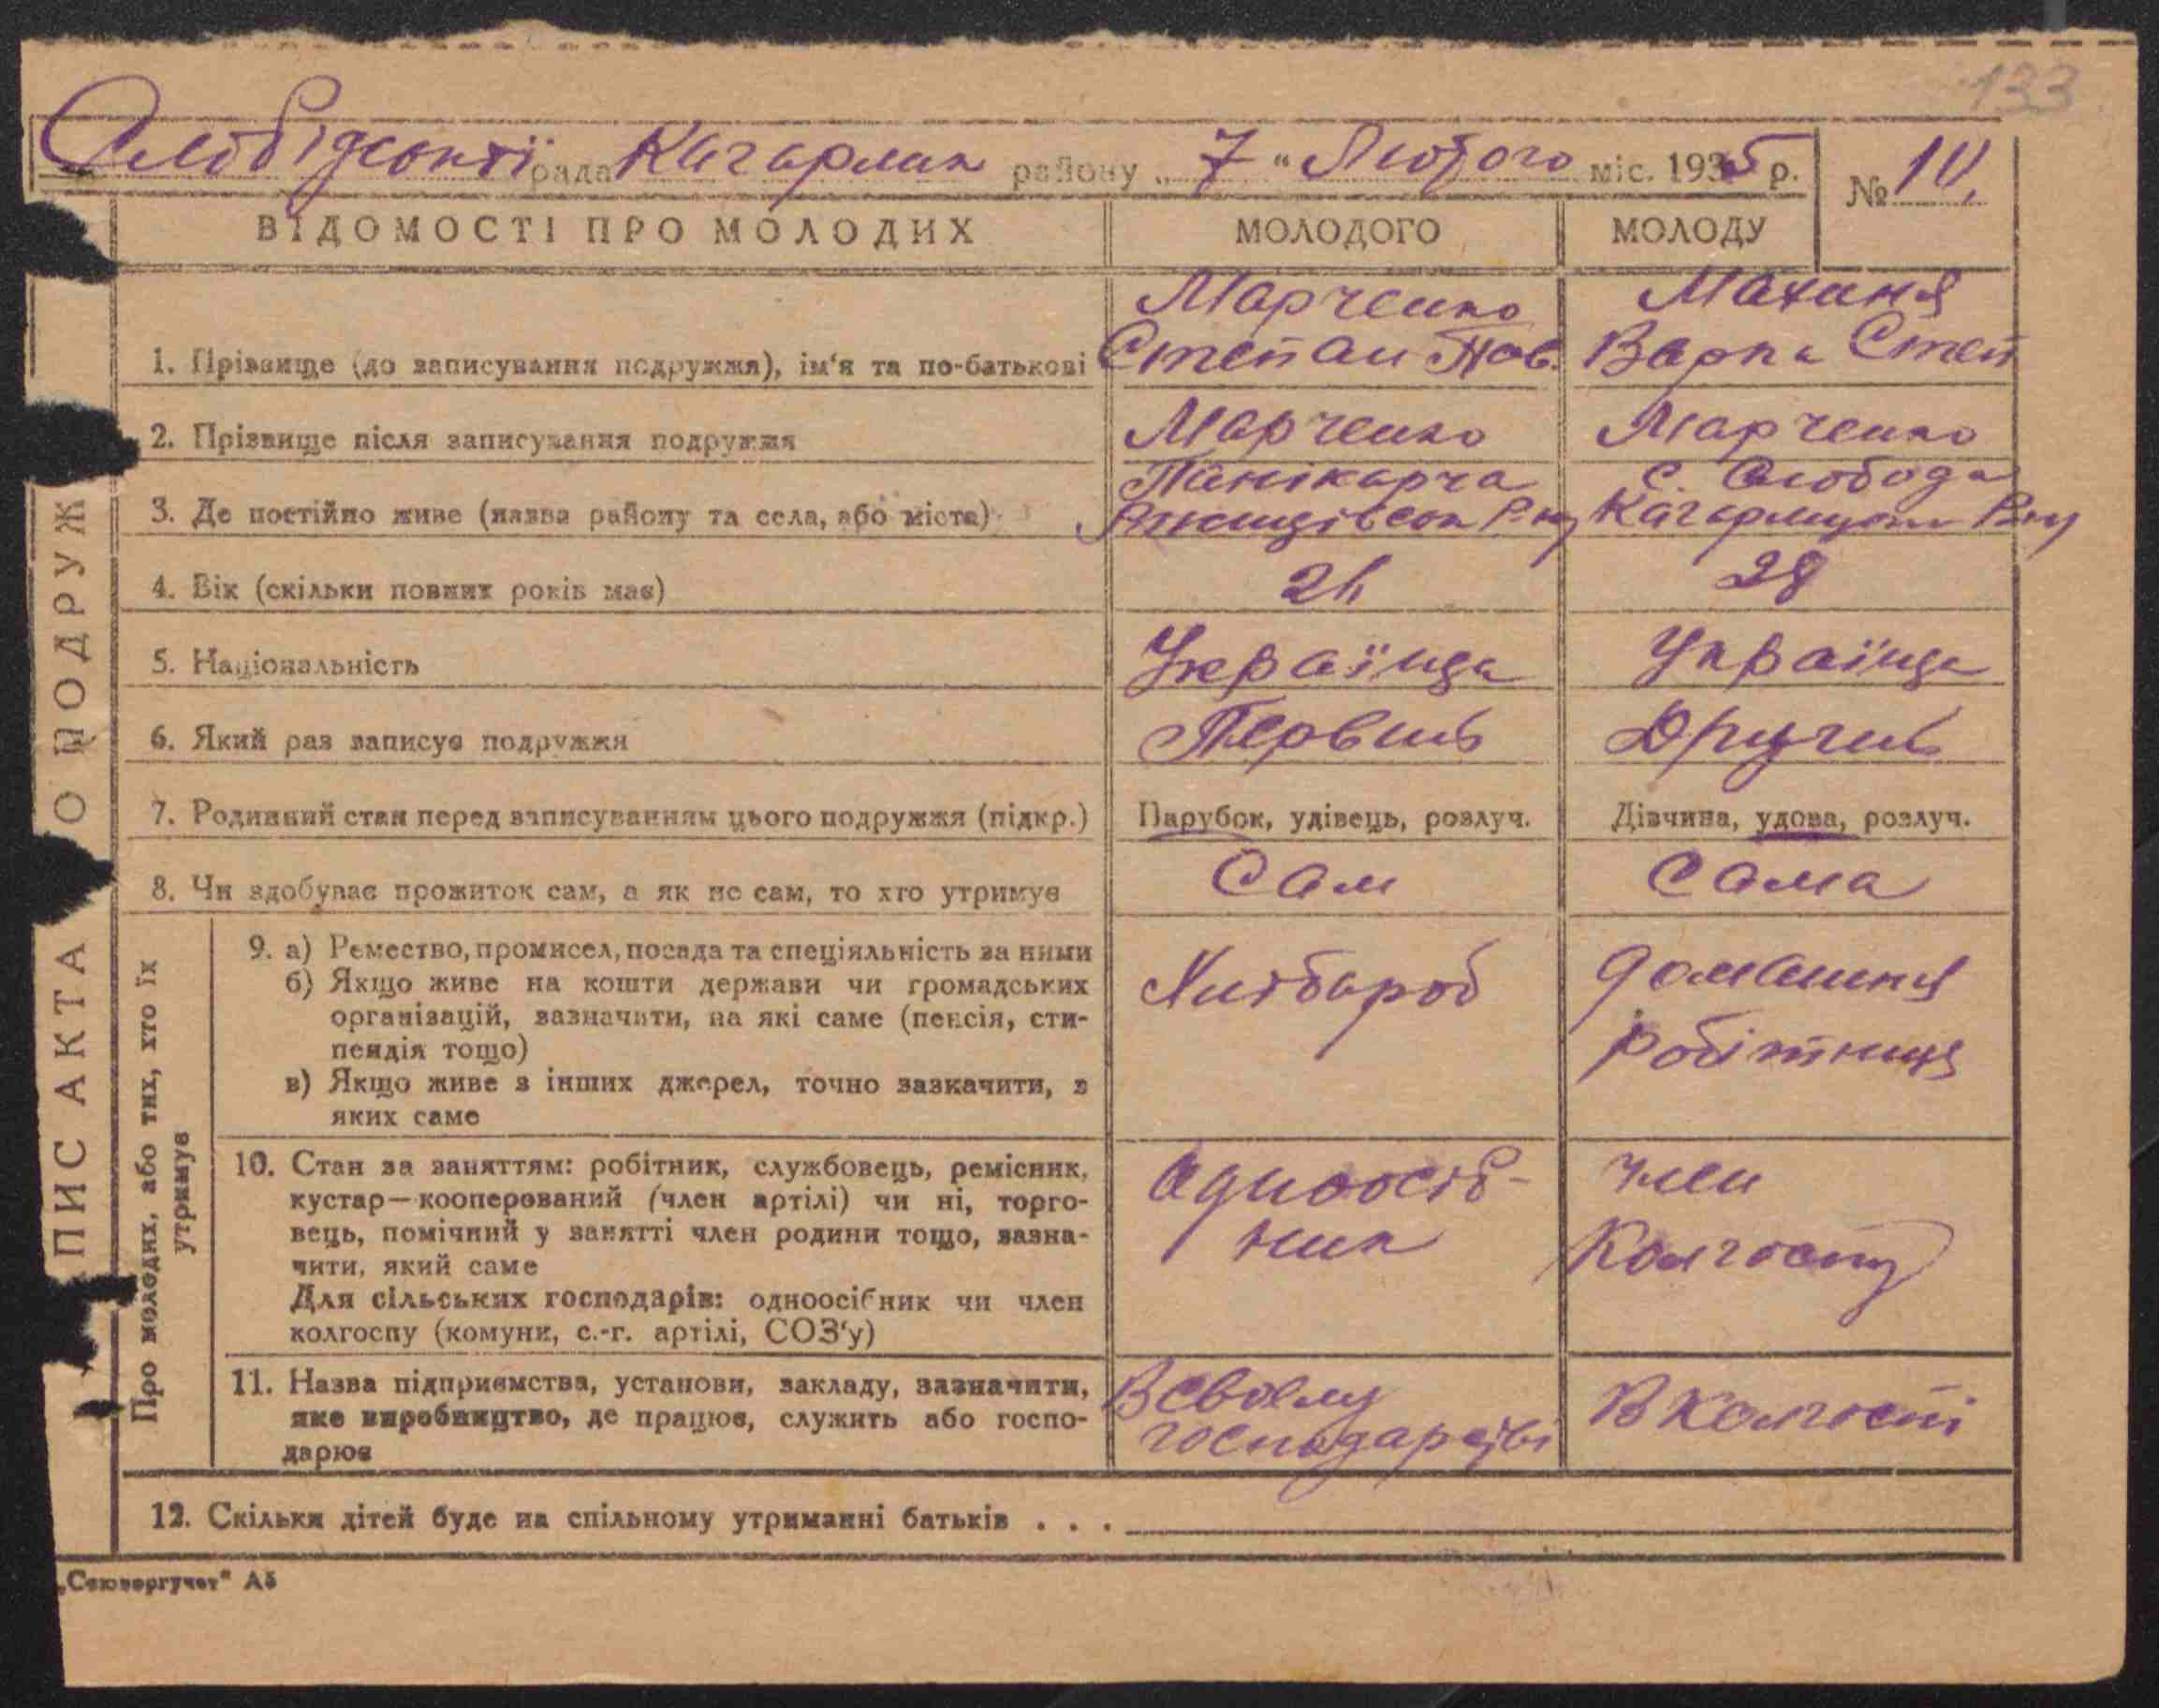 133
Слобідської рада Кагарлик району „ 7 " Лютого міс. 1935 р.
№ 10.
ВІДОМОСТІ ПРО МОЛОДИХ МОЛОДОГО МОЛОДУ
Марченко Махиня
1. Прізвище (до записування подружжя), ім'я та по-батькові Степан Пав. Варка Степ
2. Прізвище після записування подружжя Марченко Марченко
Панікарча с. Слобода
3. Де постійно живе (назва району та села, або міста) Кагарлицьк Р-ну
4. Вік (скільки повних років має) 24 28
5. Національність Українца Українца
6. Який раз записує подружжя Первий Другий
7. Родинний стан перед записуванням цього подружжя (підкр.) Парубок, удівець, розлуч. Дівчина, удова, розлуч.
8. Чи здобуває прожиток сам, а як не сам, то хто утримує Сам Сама
9. а) Ремество, промисел, посада та спеціяльність за ними
б) Якщо живе на кошти держави чи громадських
організацій, зазначити, на які саме (пенсія, сти-
пендія тощо)
в) Якщо живе з інших джерел, точно зазкачити, з
яких саме
Хлібароб
домашня
робітниця
10. Стан за заняттям: робітник, службовець, ремісник,
кустар—кооперований (член артілі) чи ні, торго-
вець, помічний у занятті член родини тощо, зазна-
чити, який саме
Для сільських господарів: одноосібник чи член
колгоспу (комуни, с.-г. артілі, СОЗ'у)
одноосіб-
ник
член
Колгоспу
11. Назва підприємства, установи, закладу, зазначити,
яке виробництво, де працює, служить або госпо-
дарює
В своєму
господарстві
В колгоспі
12. Скільки дітей буде на спільному утриманні батьків . . .
Про молодих, або тих, хто їх
утримує
ПИС АКТА О ПОДРУЖ
„Союзоргучет" А5